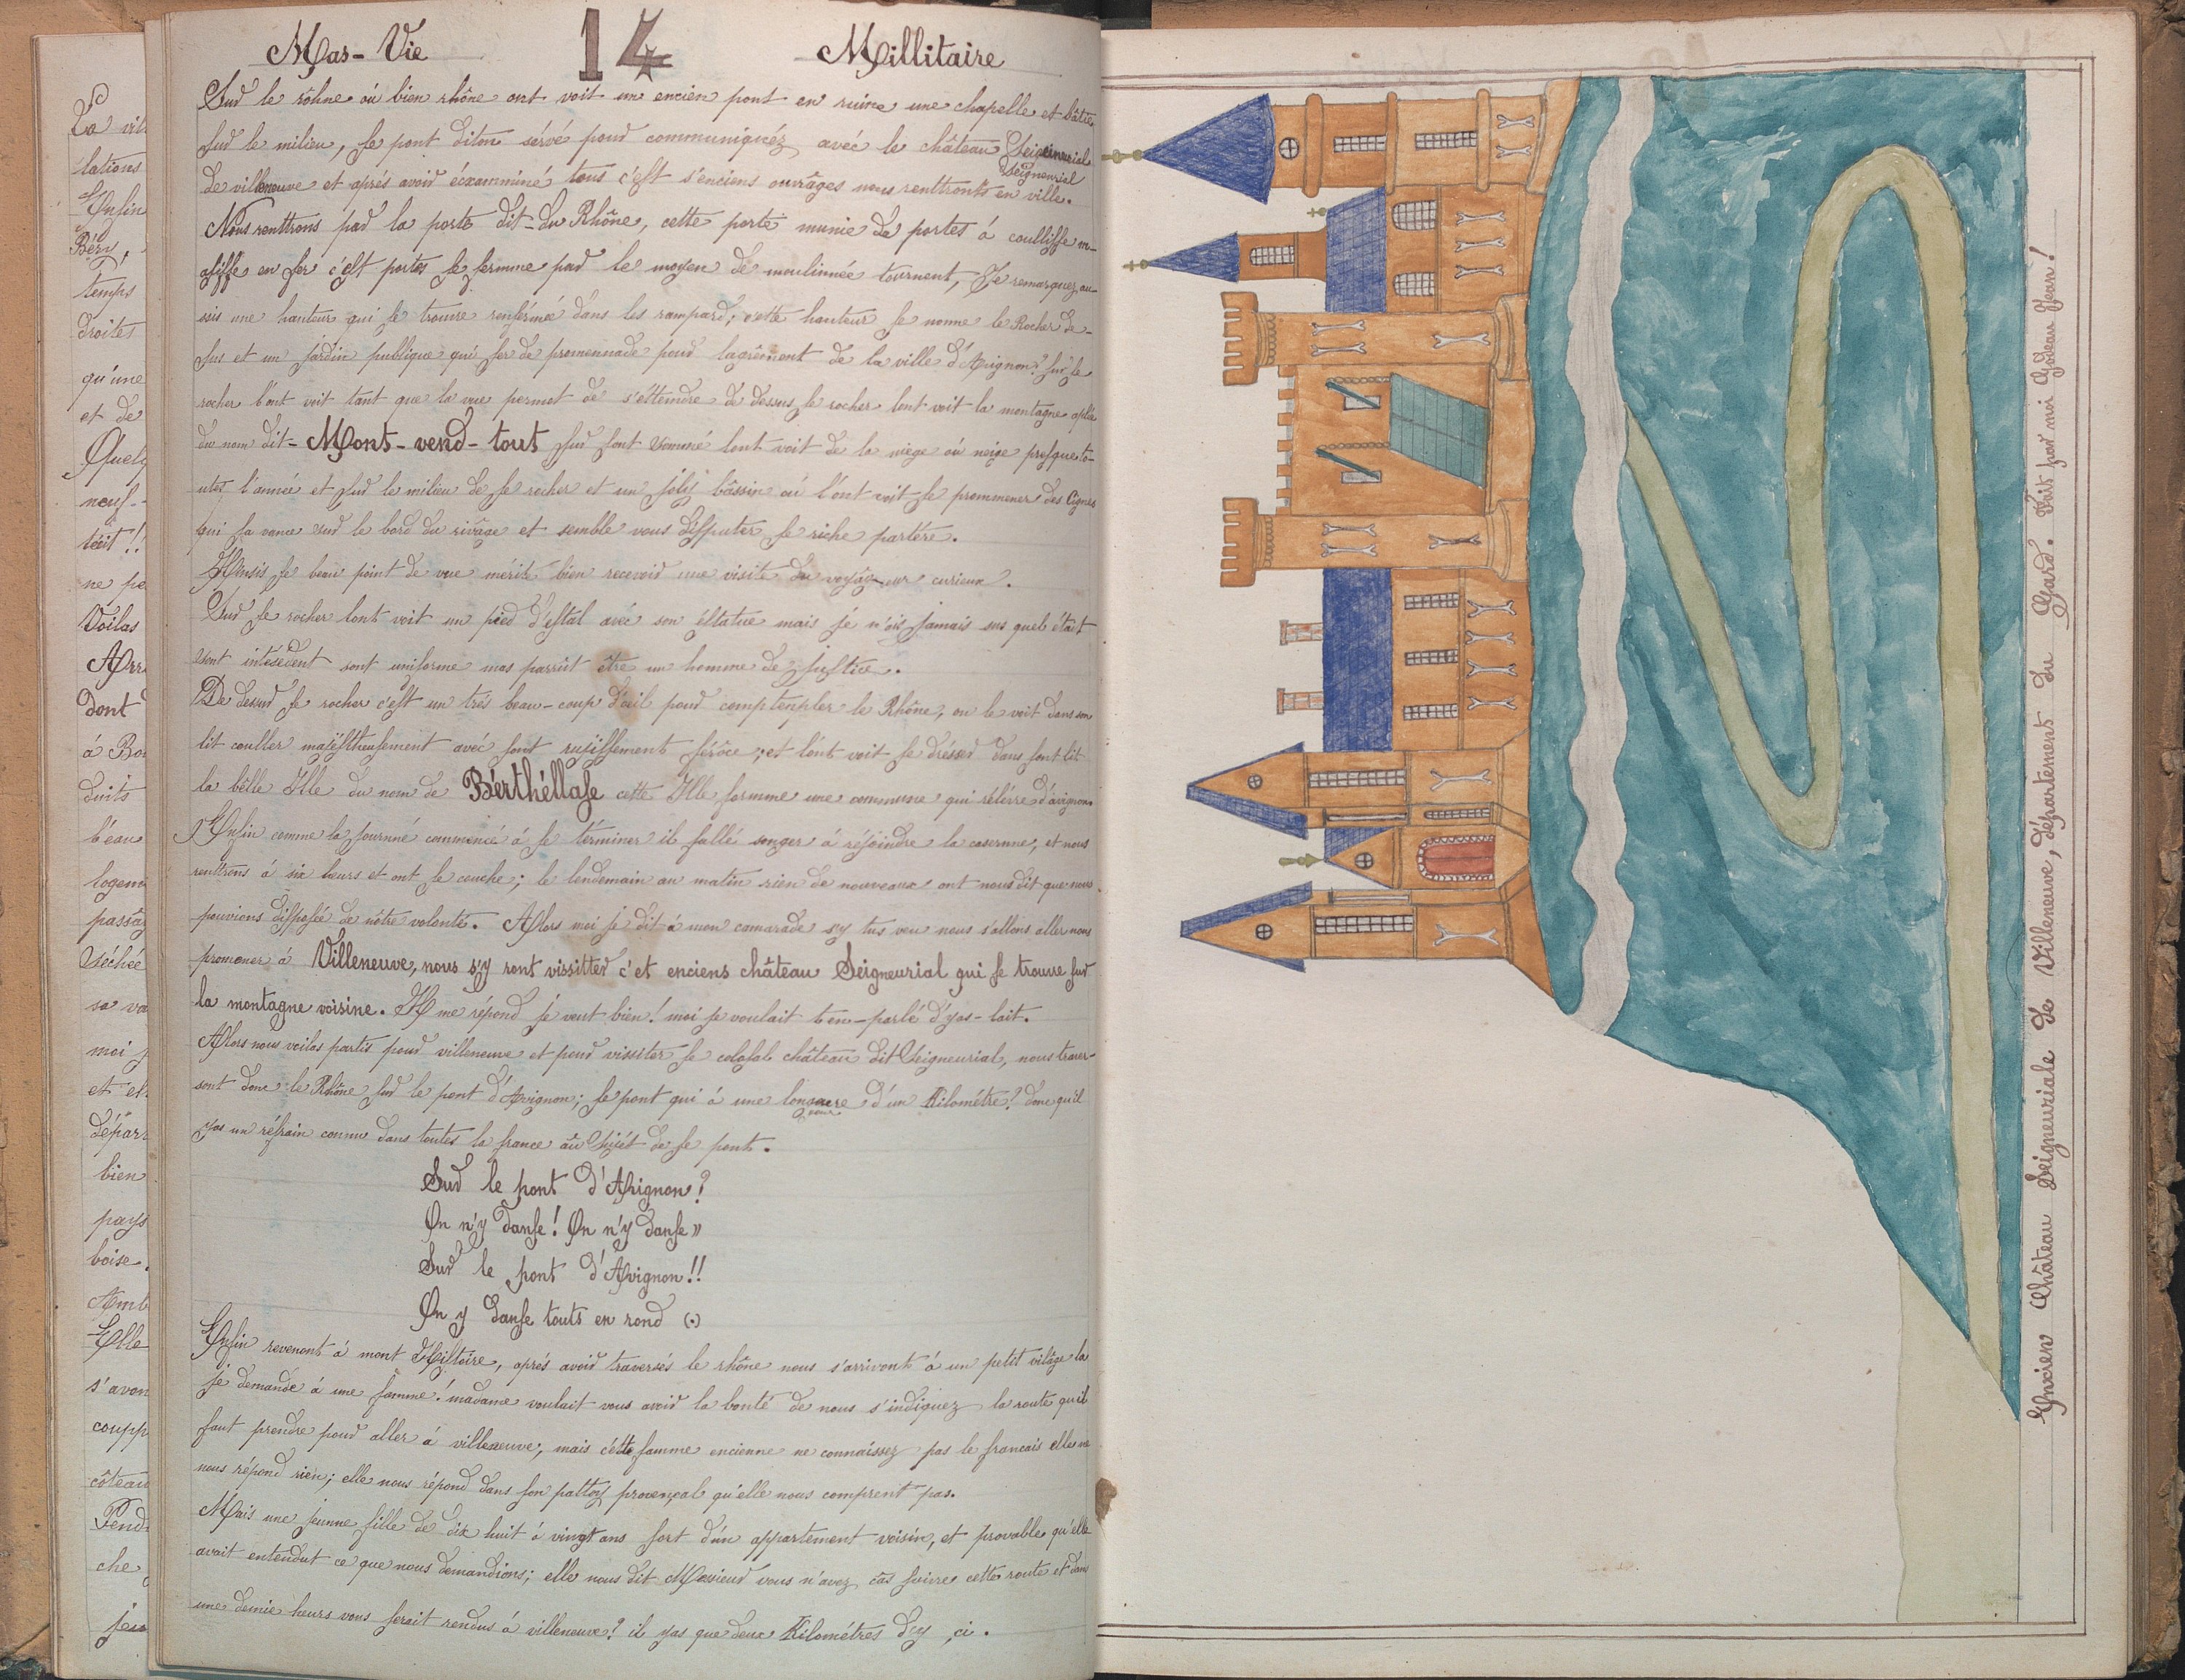 Mas-Vie 14 Millitaire
Sud le rôhne où bien rhône ont voit un encien pont en ruine une chapelle et bâtie
sud le milieu, se pont diton sérvé poud communiquéz avéc le château Seigneurial
Seigneurial
de villeneuve et aprés avoid écxamminé tous c'est s'enciens ouvrâges nous renttronts en ville.
Nous renttrons pad la porte dit-du Rhône, cette porte munie de portes á coullisse m-
assiffe en fer c'est portes se fermme pad le moyen de moulinnée tournent, Je remarquez au-
ssis une hauteur qui se trouve renférmée dans les rampard; cette hauteur se nomme le Rocher de-
sus et un jardin publique qui ser de promennade poud lagrément de la ville d'Avignon? sur le
rocher l'ont voit tant que la vue permet de s'étteindre de dessus se rocher lont voit la montagne aplée
du nom dit-Mont-vend-tout sud sont sommé lont voit de la nege où neige presque to-
utes l'année et sud le milieu de se rocher et un jôly bâssin où l'ont voit se prommener des Cignes
qui sa vance sud le bord du rivâge et semble vous disputer se riche partére.
Ainsis se beau point de vue mérite bien recevoid une visite du voyâgeur curieux.
Sud se rocher lont voit un pied d'estal avéc son éstatue mais je n'ois jamais sus quel était
sont intésédent sont uniforme mas parrùt être un homme de justice.
De dessud se rocher c'est un trés beau-coup d'œil poud comptenpler le Rhône, on le voit dans son
lit couller majésttheusement avéc sont rujissement férôce; et lónt voit se dréssed dans sont lit
la bêlle Ille du nom de Bérthéllase cette Ille formme une commune qui relévre d'avignon
Enfin comme la journné commencé á se términer il fallé songer á réjoindre la caserne, et nous
rentrons á six heurs et ont se couche; le lendemain au matin rien de nouveaux ont nous dit que nous
pouvions dispósée de nôtre volonté. Alors moi je dit á mon camarade s'y tus veu nous s'allons aller nous
promener á Villeneuve, nous s'y ront vissitted c'et enciens château Seigneurial qui se trouve sud
la montagne voisine. Il me répond je veut bien! moi je voulait ten-parlé d'yas-lait.
Alors nous voilas partis poud villeneuve et poud vissiter se colosal château dit Seigneurial, nous traver-
sont donc le Rhône sud le pont d'Avignon; se pont qui á une longueure d'un Kilométre? donc qu'il
yas un réfrain connu dans toutes la france aû sujét de se pont.
Sud le pont d'Avignon?
On n'y danse! On n'y danse »
Sud le pont d'Avignon!!
On y danse touts en rond (.)
Enfin revenont á mont Histoire, aprés avoid traversés le rhône nous s'arrivont á un petit vilâge la
je demande á une famme! madame voulait vous avoid la bonté de nous s'indiquez la route qu'il
faut prendre poud aller á villeneuve, mais cétte famme encienne ne connaissez pas le francais elle ne
nous répond rien; elle nous répond dans son pattoy provençal qu'elle nous comprent pas.
Mais une jeunne fille de dix huit á vingt ans sort d'ún appartement voisin, et provable qu'elle
avait entendut ce que nous demandions; elle nous dit Messieud vous n'avez cas suivre cette route et dans
une demie heurs vous serait rendus á villeneuve? il yas que deux Kilométres d'y ci.
Encien Château Seigneuriale de Villeneuve, département du Gard. Fait pad moi Godeau Jean!
La vil
lations
Enfin
Béry,
temps
droites
qu'une
et de
Quelq
neuf-
têit!!
ne pe
Voilas
Arri
dont
á Bo
duits
béau
logem
passâg
Séchée
sa va
moi j
et el
dépar
bien
pays
boise.
Amb
Elle
s'avon
coupp
côteau
Pend
che
jeu